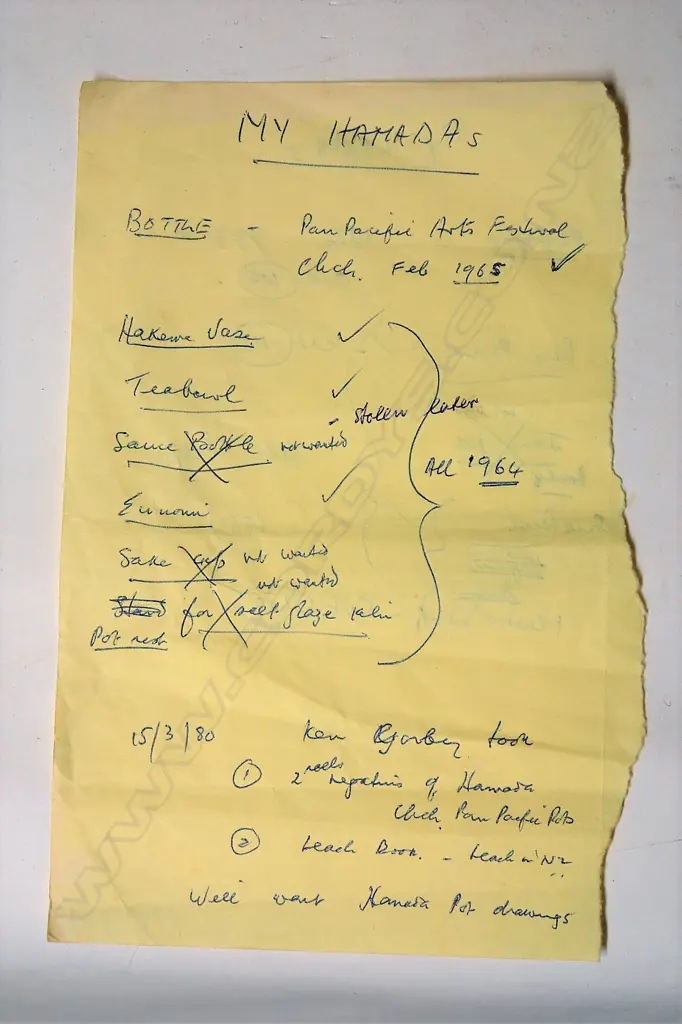 MY HAMADAs
BOTTLE - Pan Pacific Arts Festival
Chch. Feb 1965 ✓
Hakeme Vase ✓
Teabowl ✓
- Stolen later
Same Bottle not wanted
All 1964
Eunomi ✓
Sake cup not wanted
not wanted
Stand for salt glaze kiln
Pot rest
15/3/80 Ken Gorbey took
① 2 reels negatives of Hamada
Chch. Pan Pacific Pots
② Leach Book. - Leach in NZ
Will want Hamada Pot drawings